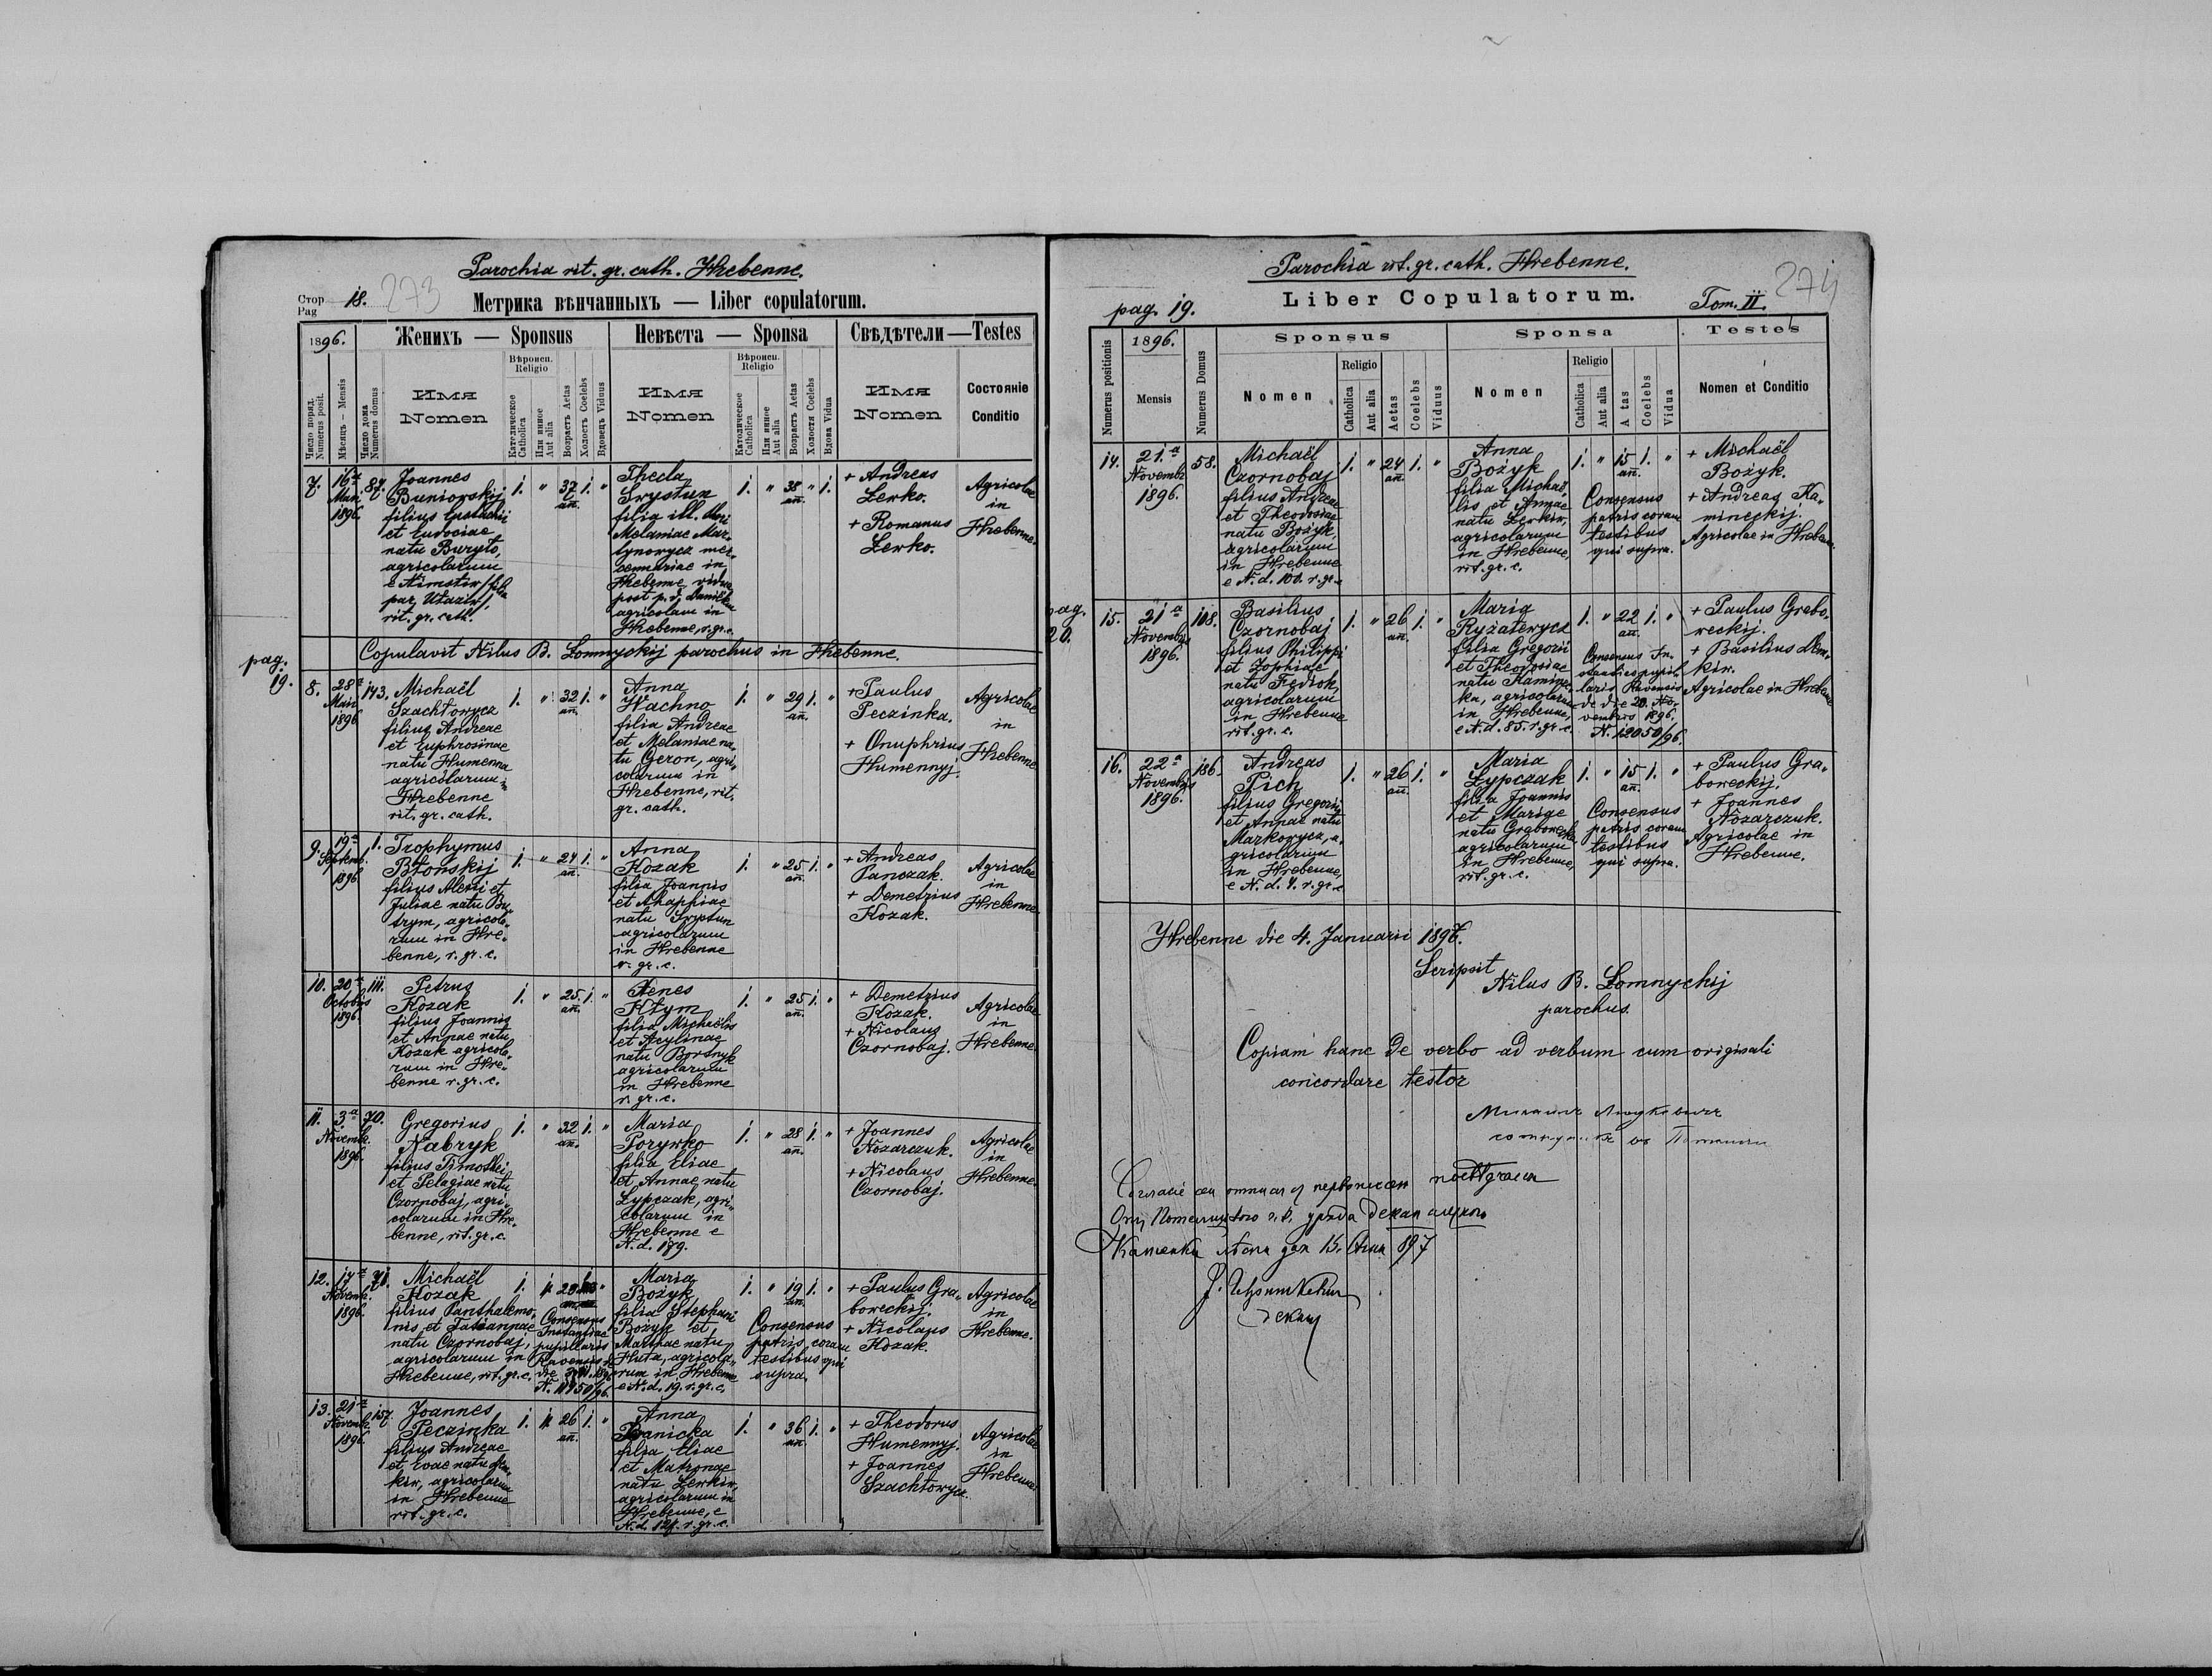 Parochia rit. gr. cath. Hrebenne.
Стор
Pag 18. 273
Метрика вѣнчанныхъ — Liber copulatorum.
1896. Женихъ — Sponsus Невѣста — Sponsa Свѣдѣтели—Testes
Число поряд. Numerus posit.
Мѣсяцъ – Mensis
Число дома Numerus domus
Имя Nomen
Вѣроисп. Religio
Католическое Catholica
Или инное Aut alia
Возрастъ Aetas
Холостъ Coelebs
Вдовецъ Viduus
Имя Nomen
Вѣроисп. Religio
Католическое Catholica
Или инное Aut alia
Возрастъ Aetas
Холоста Coelebs
Вдова Vidua
Имя Nomen
Состоянiе Conditio
7. 16a Maii 1896. 87.
Joannes
Buniowskij
filius Eustachii
et Eudociae
natu Buryło,
agricolarum
e Nimstiw
par. Ułazin
rit. gr. cath.
1. " 37 an. 1. "
Thecla
Grystun
filia ill.
Melaniae Mar-
tynowycz mer-
cennariae in
Hrebenne, vidua
post p. d.
agricolam in
Hrebenne, r. gr. c.
1. " 38 an. " 1.
+ Andreas
Lewko.
+ Romanus
Lewko.
Agricolae
in
Hrebenne.
Copulavit Nilus B. Łomnyckij parochus in Hrebenne.
pag.
19.
8. 28a Maii 1896 143.
Michaël
Szachtowycz
filius Andreae
et Euphrosinae
natu Humenna
agricolarum in
Hrebenne
rit. gr. cath.
1. " 32 an. 1. "
Anna
Wachno
filia Andreae
et Melaniae na-
tu Geron, agri-
colarum in
Hrebenne, rit.
gr. cath.
1. " 29 an. 1. "
+ Paulus
Peczinka.
+ Onuphrius
Humennyj.
Agricolae
in
Hrebenne
9. 19a Septemb. 1896 1.
Trophymus
Błonskij
filius Alexii et
Juliae natu Bu-
trym, agricola-
rum in Hre-
benne, r. gr. c.
1. " 24 an. 1. "
Anna
Kozak
filia Joannis
et Ahaphiae
natu Grystun
agricolarum
in Hrebenne
r. gr. c.
1. " 25 an. 1. "
+ Andreas
Panczak.
+ Demetrius
Kozak.
Agricolae
in
Hrebenne
10. 20a Octobris 1896. 111.
Petrus
Kozak
filius Joannis
et Annae natu
Kozak agricola-
rum in Hre-
benne r. gr. c.
1. " 25 an. 1. "
Agnes
Kłym
filia Michaëlis
et Acylinae
natu Bortnyk
agricolarum
in Hrebenne
r. gr. c.
1. " 25 an. 1. "
+ Demetrius
Kozak.
+ Nicolaus
Czornobaj.
Agricolae
in
Hrebenne.
11. 3a Novemb. 1896. 70.
Gregorius
Nabryk
filius Timothei
et Pelagiae natu
Czornobaj, agri-
colarum in Hre-
benne, rit. gr. c.
1. " 32 an. 1. "
Maria
Porywko
filia Eliae
et Annae natu
Lypczak, agri-
colarum in
Hrebenne e
N. d. 179.
1. " 28 an. 1. "
+ Joannes
Nozarczuk.
+ Nicolaus
Czornobaj.
Agricolae
in
Hrebenne.
12. 17a Novemb. 1896. 71.
Michaël
Kozak
filius Panthalemo-
nis et Tatiannae
natu Czornobaj,
agricolarum in
Hrebenne, rit. gr. c.
1. 20
Consensus
Instantiae
pupillaris
Ravensis de
die
N. 11950/96.
Maria
Bożyk
filia Stephani
Bożyk et
Marinae natu
Huta, agricola-
rum in Hrebenne
e N. d. 19. r. gr. c.
1. " 19 an. 1. "
Consensus
patris coram
testibus qui
supra.
+ Paulus Gra-
boweckij.
+ Nicolaus
Kozak.
Agricolae
in
Hrebenne.
13. 21a Novemb. 1896 157
Joannes
Peczinka
filius Andreae
et Evae natu Dem-
kiw, agricolarum
in Hrebenne
rit. gr. c.
1. 26 an. 1. "
Anna
Banicka
filia Eliae
et Matronae
natu Lewkiw,
agricolarum in
Hrebenne, e
N. d. 124. r. gr. c.
1. " 36 an. 1. "
+ Theodorus
Humennyj.
+ Joannes
Szachtowycz.
Agricolae
in
Hrebenne
Parochia rit. gr. cath. Hrebenne.
pag. 19. Liber Copulatorum. Tom. II. 274
Numerus positionis
1896. Mensis
Numerus Domus
Sponsus
Nomen
Religio
Catholica
Aut alia
Aetas
Coelebs
Viduus
Sponsa
Nomen
Religio
Catholica
Aut alia
A tas
Coelebs
Vidua
Testes
Nomen et Conditio
14. 21.a Novemb. 1896. 58.
Michaël
Czornobaj
filius Andreae
et Theodosiae
natu Bożyk,
agricolarum
in Hrebenne
e N. d. 100. r. gr. c.
1. " 24 an. 1. "
Anna
Bożyk
filia Michaë-
lis et Annae
natu Lewkiw,
agricolarum
in Hrebenne,
rit. gr. c.
1. " 15 an. 1. "
Consensus
patris coram
testibus
qui supra.
+ Michaël
Bożyk.
+ Andreas Ka-
mineckij.
Agricolae in Hrebenne.
pag.
20.
15. 21a Novembris 1896. 108.
Basilius
Czornobaj
filius Philippi
et Zophiae
natu Fedioh,
agricolarum
in Hrebenne
rit. gr. c.
1. " 26 an. 1. "
Maria
Ryżaterycz
filia Gregorii
et Theodosiae
natu Kaminec-
ka, agricolarum
in Hrebenne,
e N. d. 85. r. gr. c.
1. " 22 an. 1. "
Consensus In-
stantiae pupil-
laris Ravensis
de die 20. No-
vembris 1896.
N. 12050/96.
+ Paulus Grabo-
weckij.
+ Basilius Dem-
kiw.
Agricolae in Hrebenne
16. 22a Novembris 1896. 186.
Andreas
Pich
filius Gregorii
et Annae natu
Markowycz, a-
gricolarum
in Hrebenne,
e N. d. 4. r. gr. c.
1. " 26 an. 1. "
Maria
Lypczak
filia Joannis
et Mariae
natu Grabowecka
agricolarum
in Hrebenne,
rit. gr. c.
1. " 15 an. 1. "
Consensus
patris coram
testibus
qui supra.
+ Paulus Gra-
boweckij.
+ Joannes
Nozarczuk.
Agricolae in
Hrebenne.
Hrebenne die 4. Januarii 1897.
Scripsit
Nilus B. Łomnyckij
parochus.
Copiam hanc de verbo ad verbum cum originali
concordare testor